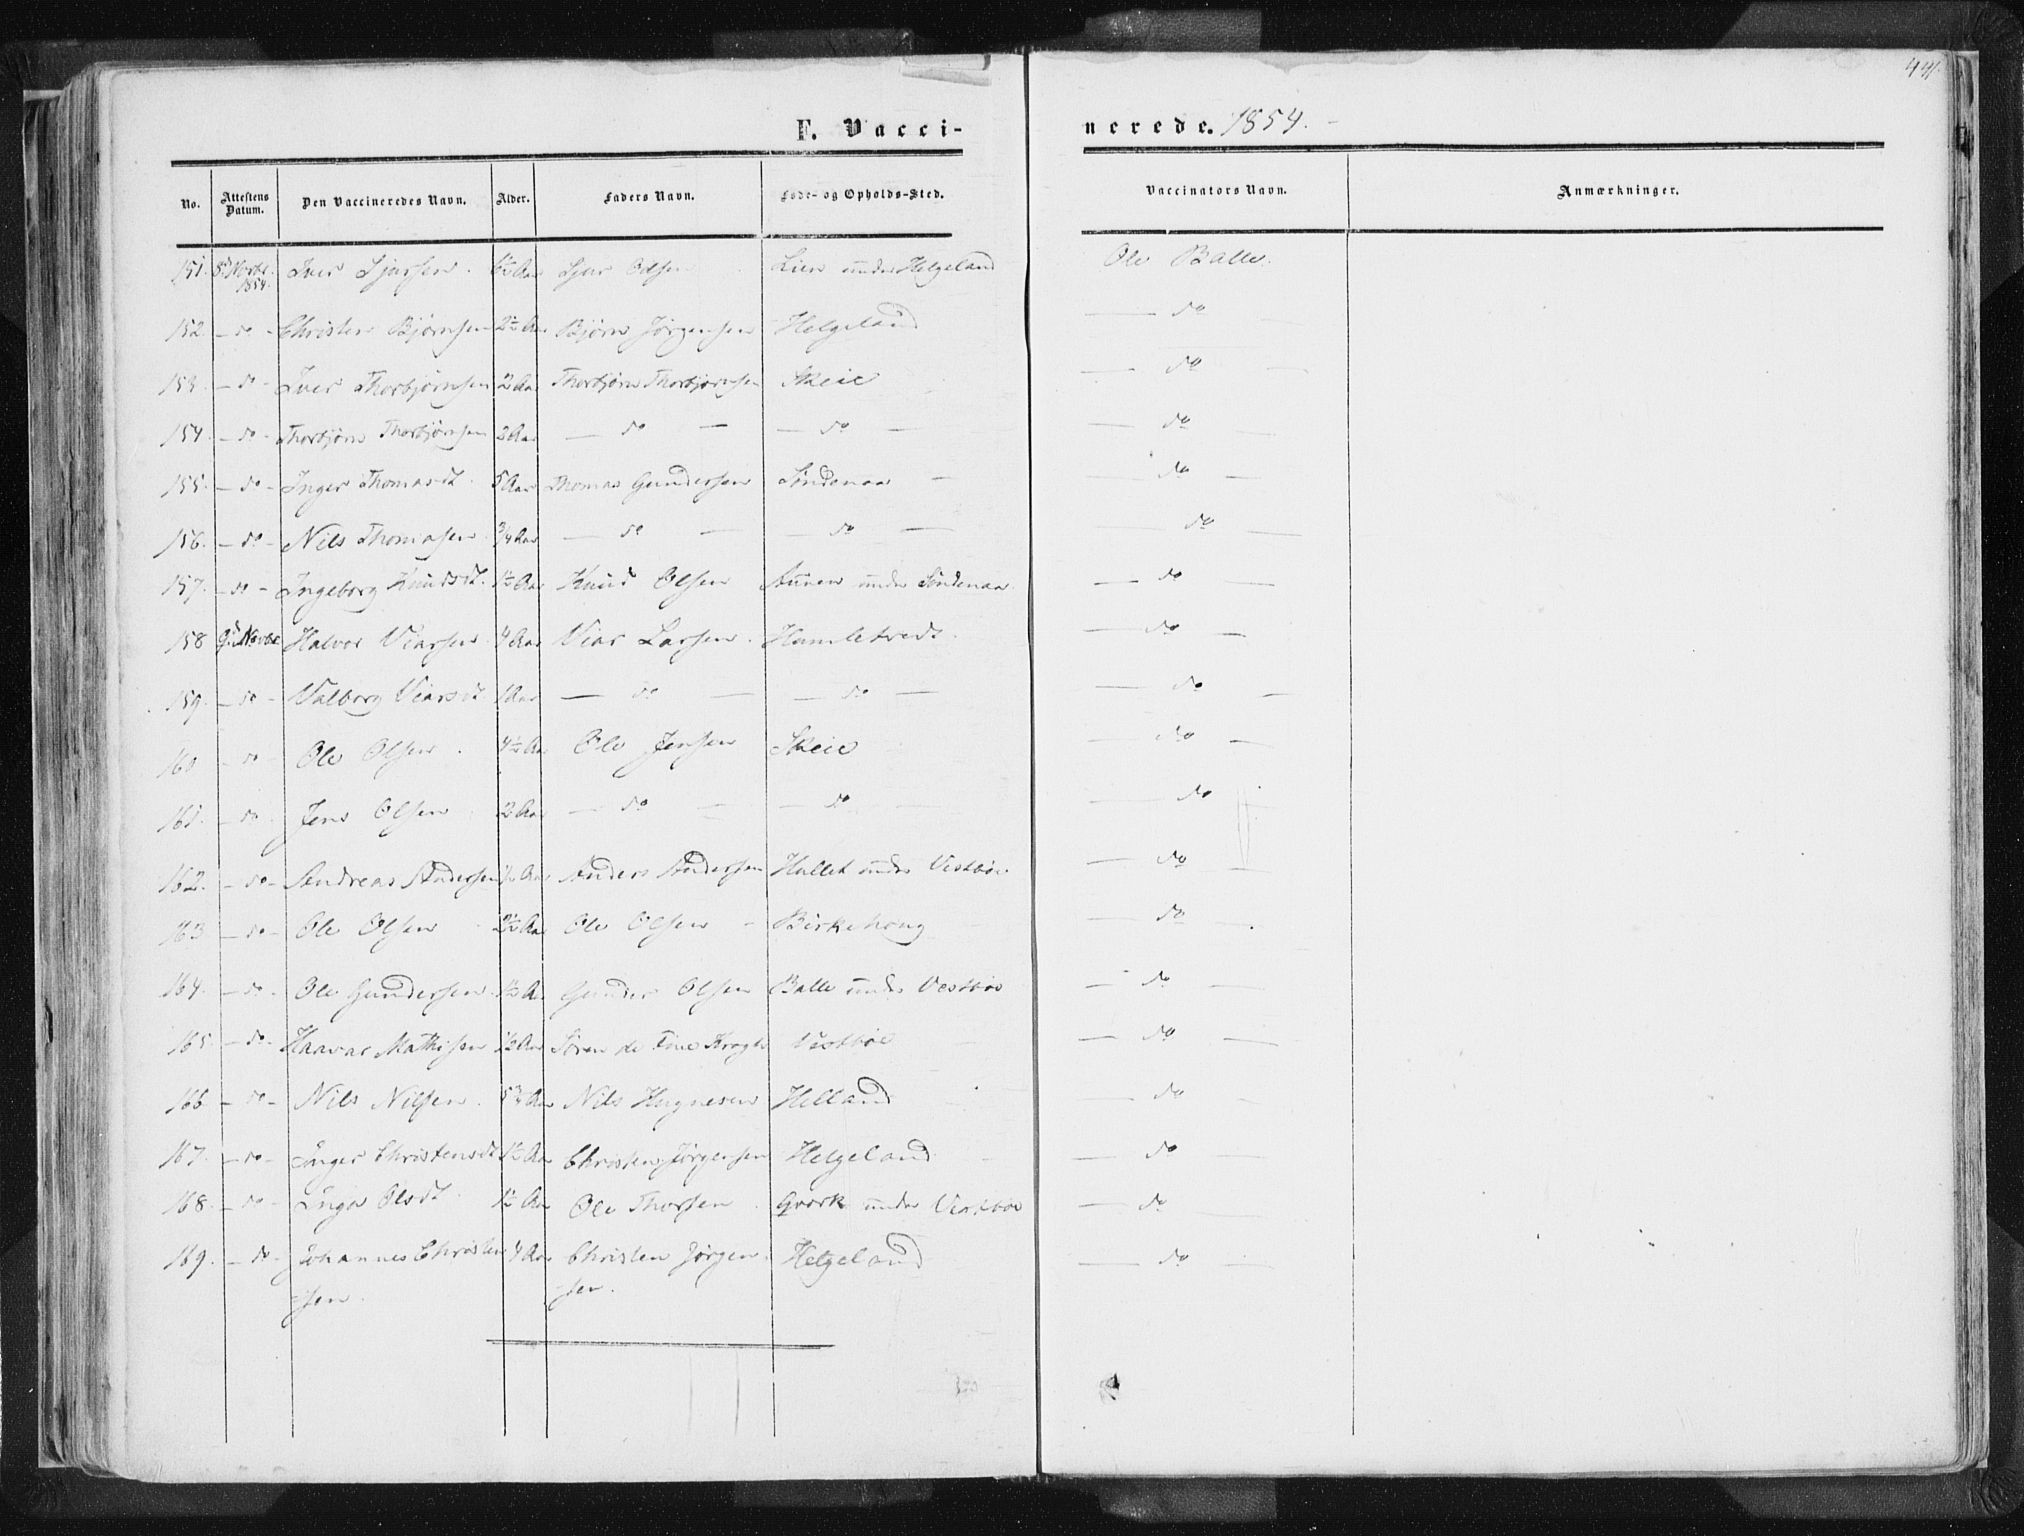 441.
F. Vaccinerede. 1854.
No. Attestens Datum. Den Vaccineredes Navn. Alder. Faders Navn. Føde- og Opholds-Sted. Vaccinators Navn. Anmærkninger.
151. 8d Novbr. 1854. Iver Sjursen. Aar Sjur Odsen Lien under Helgeland Ole Balle.
152. - do - Christen Bjørnsen 2½ Aar Bjørn Jørgensen Helgeland — do —
153. - do - Iver Thorbjørnsen 2 Aar Thorbjørn Thorbjørnsen Skeie — do —
154. - do - Thorbjørn Thorbjørnsen 2 Aar — do — — do — — do —
155. - do - Inger Thomasdt. 5 Aar Thomas Gundersen Søndenaa — do —
156. - do - Nils Thomasen ¾ Aar — do — — do — — do —
157. - do - Ingeborg Knudsdt. 1½ Aar Knud Olsen under Søndenaa. — do —
158 9d Novbr Halvor Viarsen. 4 Aar Viar Larsen. Humletveds. — do —
159. - do - Valborg Viarsdt 1 Aar — do — — do — — do —
160 - do - Ole Olsen. 4½ Aar Ole Jensen Skeie — do —
161. - do - Jens Olsen 2 Aar — do — — do — — do —
162. - do - Andreas Andersen ½ Aar Anders Andersen Hullet under Vestbøe — do —
163 - do - Ole Olsen - 2½ Aar Ole Olsen - Birkehoug — do —
164. - do - Ole Gundersen. 1½ A. Gunder Olsen Balle under Vestbøe — do —
165. - do - Haavar Mathisen ½ Aar Søren de Fine Krogh Vestbøe — do —
166 - do - Nils Nilsen. 5¾ Aar Nils Hugnesen Helland — do —
167. - do - Inger Christensdt 1½ Aar Christen Jørgensen Helgeland — do —
168. - do - Inga Olsdt. 1½ Aar Ole Thorsen. Qværk under Vestbøe — do —
169. - do - Johannes Christen 4 Aar Christen Jørgen- Helgeland — do —
-sen. -sen.